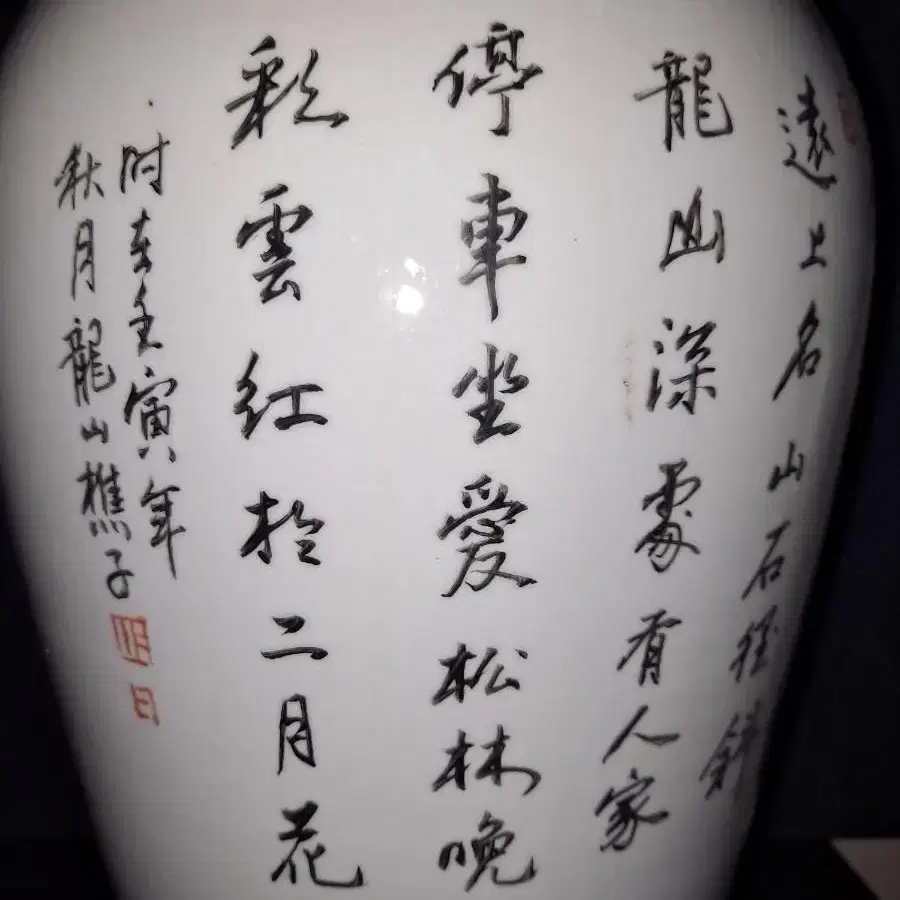 遠上名山石徑斜
龍山深處有人家
停車坐愛松林晚
彩雲紅於二月花
时在壬寅年
秋月龍山樵子